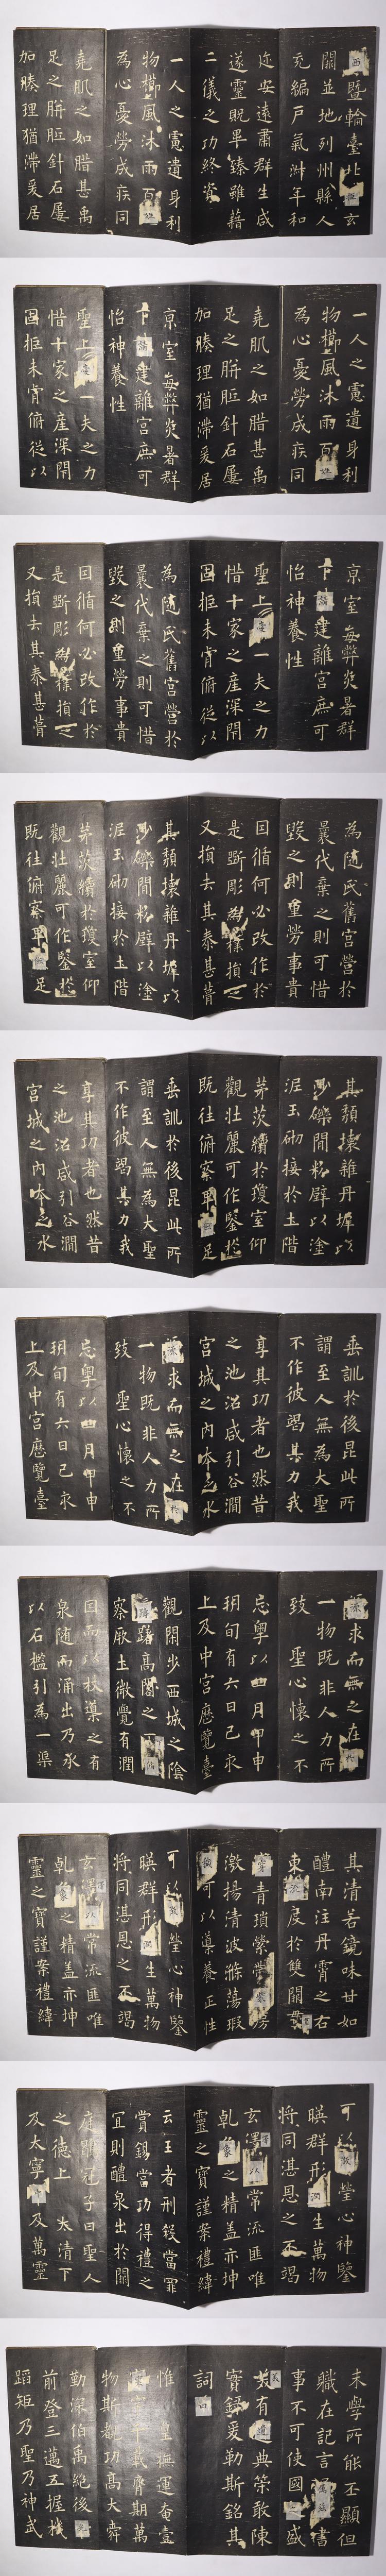 西暨輪臺北拒玄
闕並地列州縣人
充編戶氣淑年和
迩安遠肅群生咸
遂靈貺畢臻雖藉
二儀之功終資
一人之慮遺身利
物櫛風沐雨百姓
為心憂勞成疾同
堯肌之如腊甚禹
足之胼胝針石屢
加腠理猶滯爰居
一人之慮遺身利
物櫛風沐雨百姓
為心憂勞成疾同
堯肌之如腊甚禹
足之胼胝針石屢
加腠理猶滯爰居
京室每弊炎暑群
下請建離宮庶可
怡神養性
聖上愛一夫之力
惜十家之產深閉
固拒未肯俯從以
京室每弊炎暑群
下請建離宮庶可
怡神養性
聖上愛一夫之力
惜十家之產深閉
固拒未肯俯從以
為隨氏舊宮營於
曩代棄之則可惜
毀之則重勞事貴
因循何必改作於
是斲彫為樸損之
又損去其泰甚葺
為隨氏舊宮營於
曩代棄之則可惜
毀之則重勞事貴
因循何必改作於
是斲彫為樸損之
又損去其泰甚葺
其頹壞雜丹墀以
沙礫間粉壁以塗
泥玉砌接於土階
茅茨續於瓊室仰
觀壯麗可作鑒於
既往俯察卑儉足
其頹壞雜丹墀以
沙礫間粉壁以塗
泥玉砌接於土階
茅茨續於瓊室仰
觀壯麗可作鑒於
既往俯察卑儉足
垂訓於後昆此所
謂至人無為大聖
不作彼竭其力我
享其功者也然昔
之池沼咸引谷澗
宮城之內本乏水
垂訓於後昆此所
謂至人無為大聖
不作彼竭其力我
享其功者也然昔
之池沼咸引谷澗
宮城之內本乏水
源求而無之在乎
一物既非人力所
致 聖心懷之不
忘粵以四月甲申
朔旬有六日己亥
上及中宮歷覽臺
源求而無之在乎
一物既非人力所
致 聖心懷之不
忘粵以四月甲申
朔旬有六日己亥
上及中宮歷覽臺
觀閑步西城之陰
躊躇高閣之下俯
察厥土微覺有潤
因而以杖導之有
泉隨而涌出乃承
以石檻引為一渠
其清若鏡味甘如
醴南注丹霄之右
東流度於雙闕貫
穿青瑣縈帶紫房
激揚清波滌蕩瑕
穢可以導養正性
可以澂瑩心神鑒
暎群形潤生萬物
將同湛恩之不竭
玄澤以常流匪唯
乾象之精蓋亦坤
靈之寶謹案禮緯
可以澂瑩心神鑒
暎群形潤生萬物
將同湛恩之不竭
玄澤以常流匪唯
乾象之精蓋亦坤
靈之寶謹案禮緯
云王者刑殺當罪
賞錫當功得禮之
宜則醴泉出於闕
庭鶡冠子曰聖人
之德上及太清下
及太寧中及萬靈
未學所能丕顯但
職在記言屬茲書
事不可使國之盛
美有遺典策敢陳
實錄爰勒斯銘其
詞曰
惟皇撫運奄壹
寰宇千載膺期萬
物斯覩功高大舜
勤深伯禹絕後光
前登三邁五握機
蹈矩乃聖乃神武